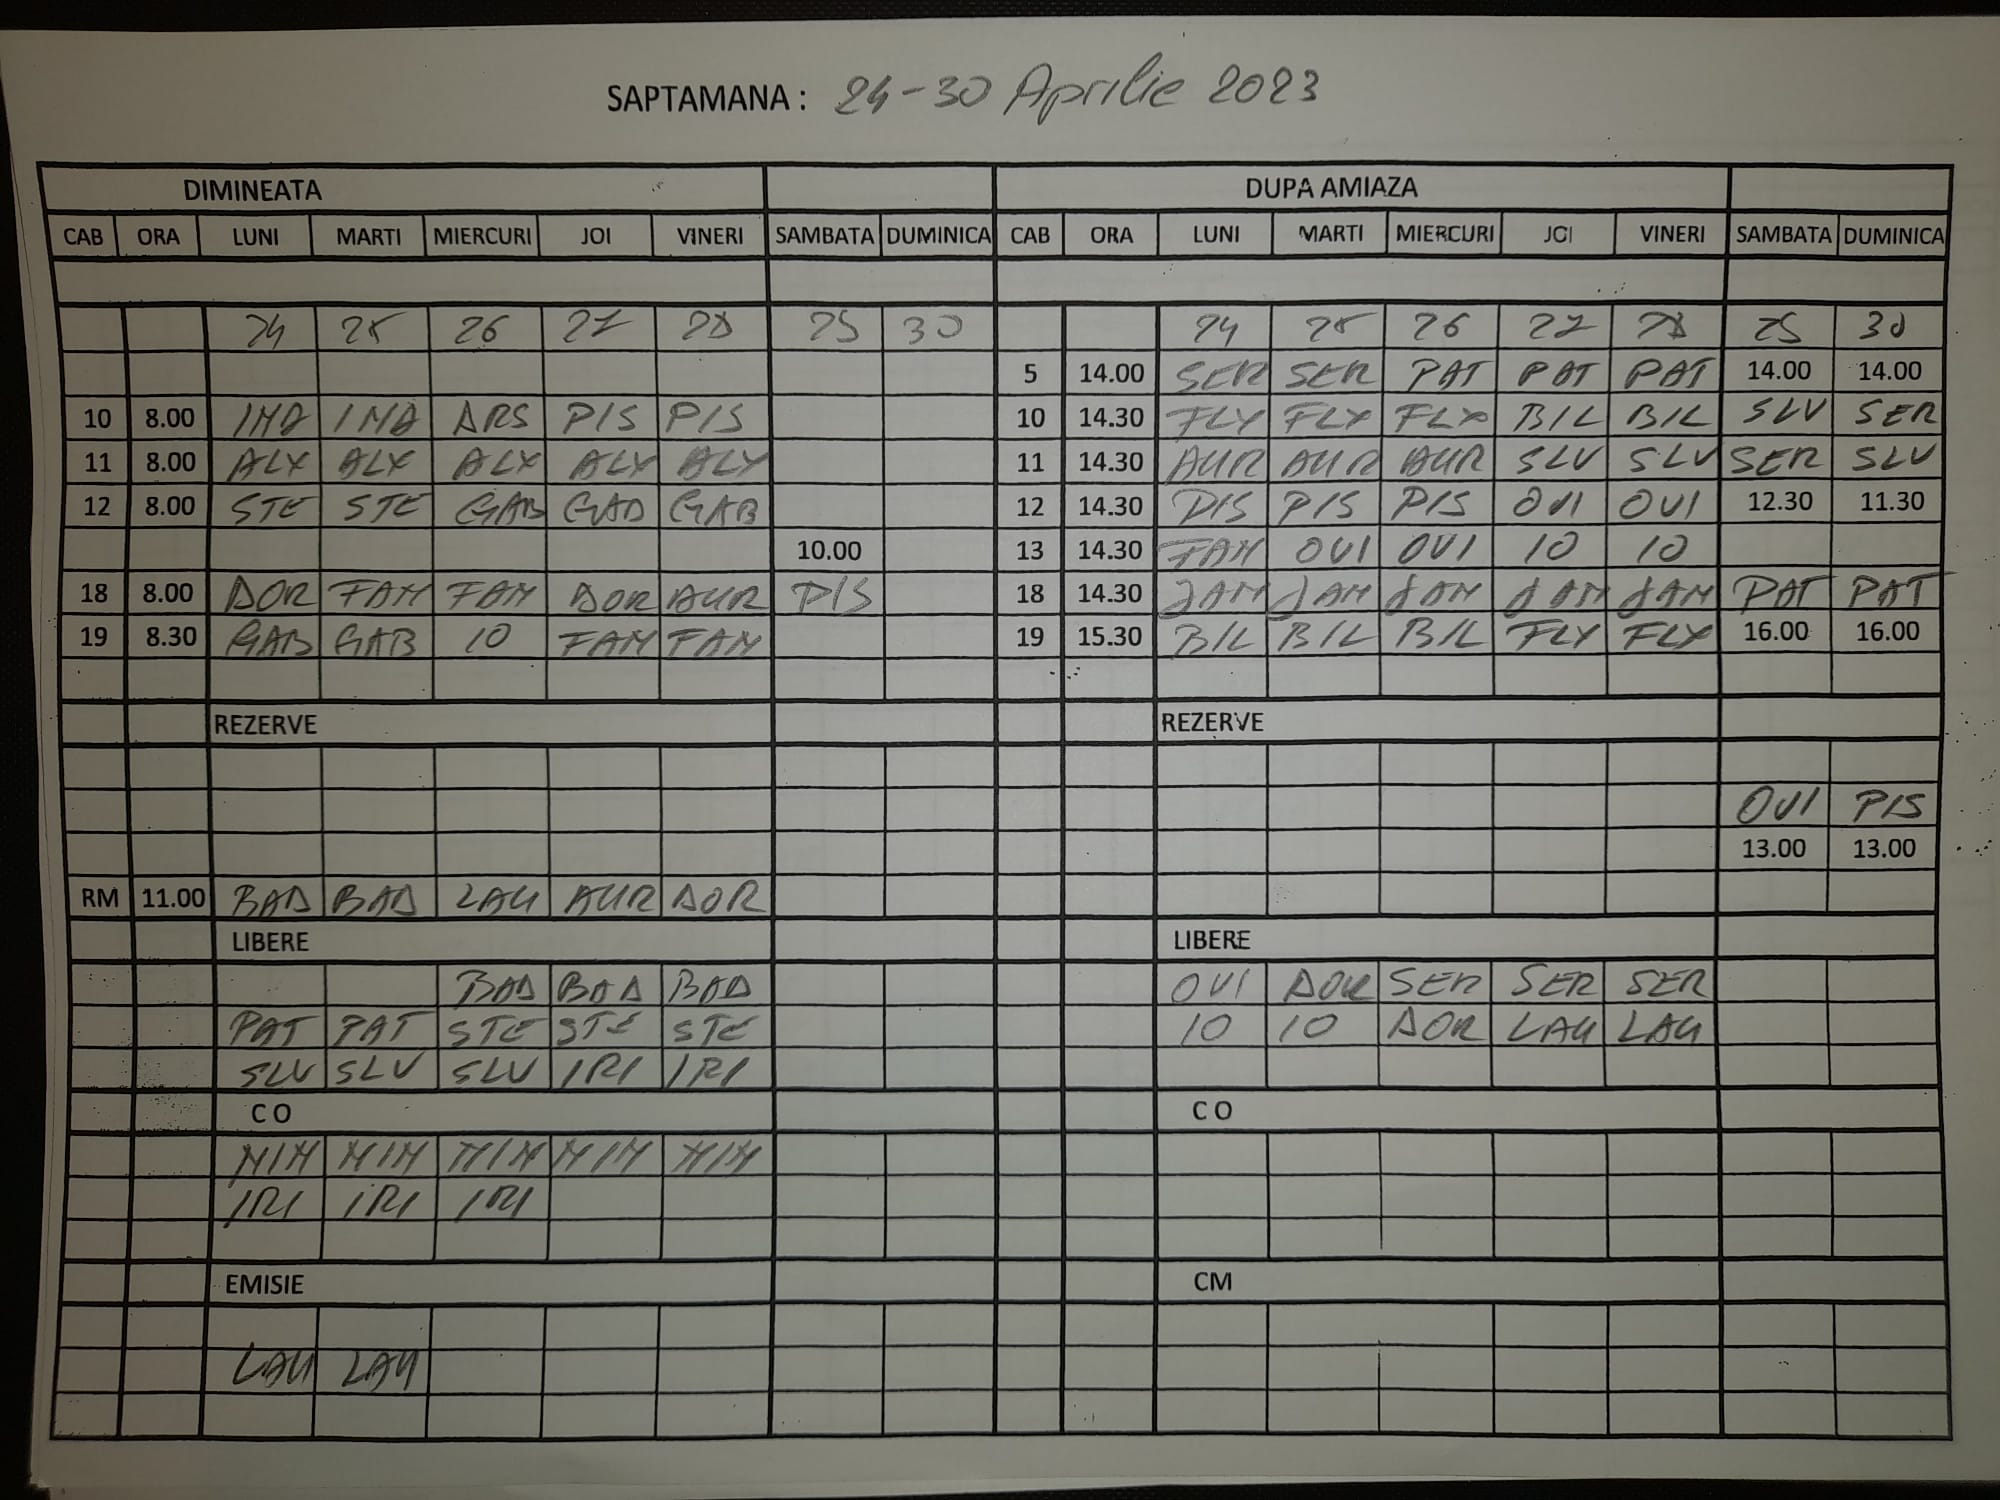 SAPTAMANA : 24-30 Aprilie 2023
DIMINEATA DUPA AMIAZA
CAB ORA LUNI MARTI MIERCURI JOI VINERI SAMBATA DUMINICA CAB ORA LUNI MARTI MIERCURI JOI VINERI SAMBATA DUMINICA
24 25 26 27 28 29 30 24 25 26 27 28 29 30
5 14.00 SER SER PAT PAT PAT 14.00 14.00
10 8.00 ARS PIS PIS 10 14.30 FLY FLY FLY BIL BIL SLV SER
11 8.00 ALX ALX ALX ALX ALX 11 14.30 AUR AUR AUR SLV SLV SER SLV
12 8.00 STE STE GAB GAB GAB 12 14.30 PIS PIS PIS OVI OVI 12.30 11.30
10.00 13 14.30 FAM OVI OVI 10 10
18 8.00 DOR FAM FAM DOR AUR PIS 18 14.30 JAM JAM JAM JAM JAM PAT PAT
19 8.30 GAB GAB 10 FAM FAM 19 15.30 BIL BIL BIL FLY FLY 16.00 16.00
REZERVE REZERVE
OVI PIS
13.00 13.00
RM 11.00 BAD BAD LAU AUR DOR
LIBERE LIBERE
BAD BAD BAD OVI DOR SER SER SER
PAT PAT STE STE STE 10 10 DOR LAU LAU
SLV SLV SLV IRI IRI
C O C O
MIM MIM MIM MIM MIM
IRI IRI IRI
EMISIE CM
LAU LAU